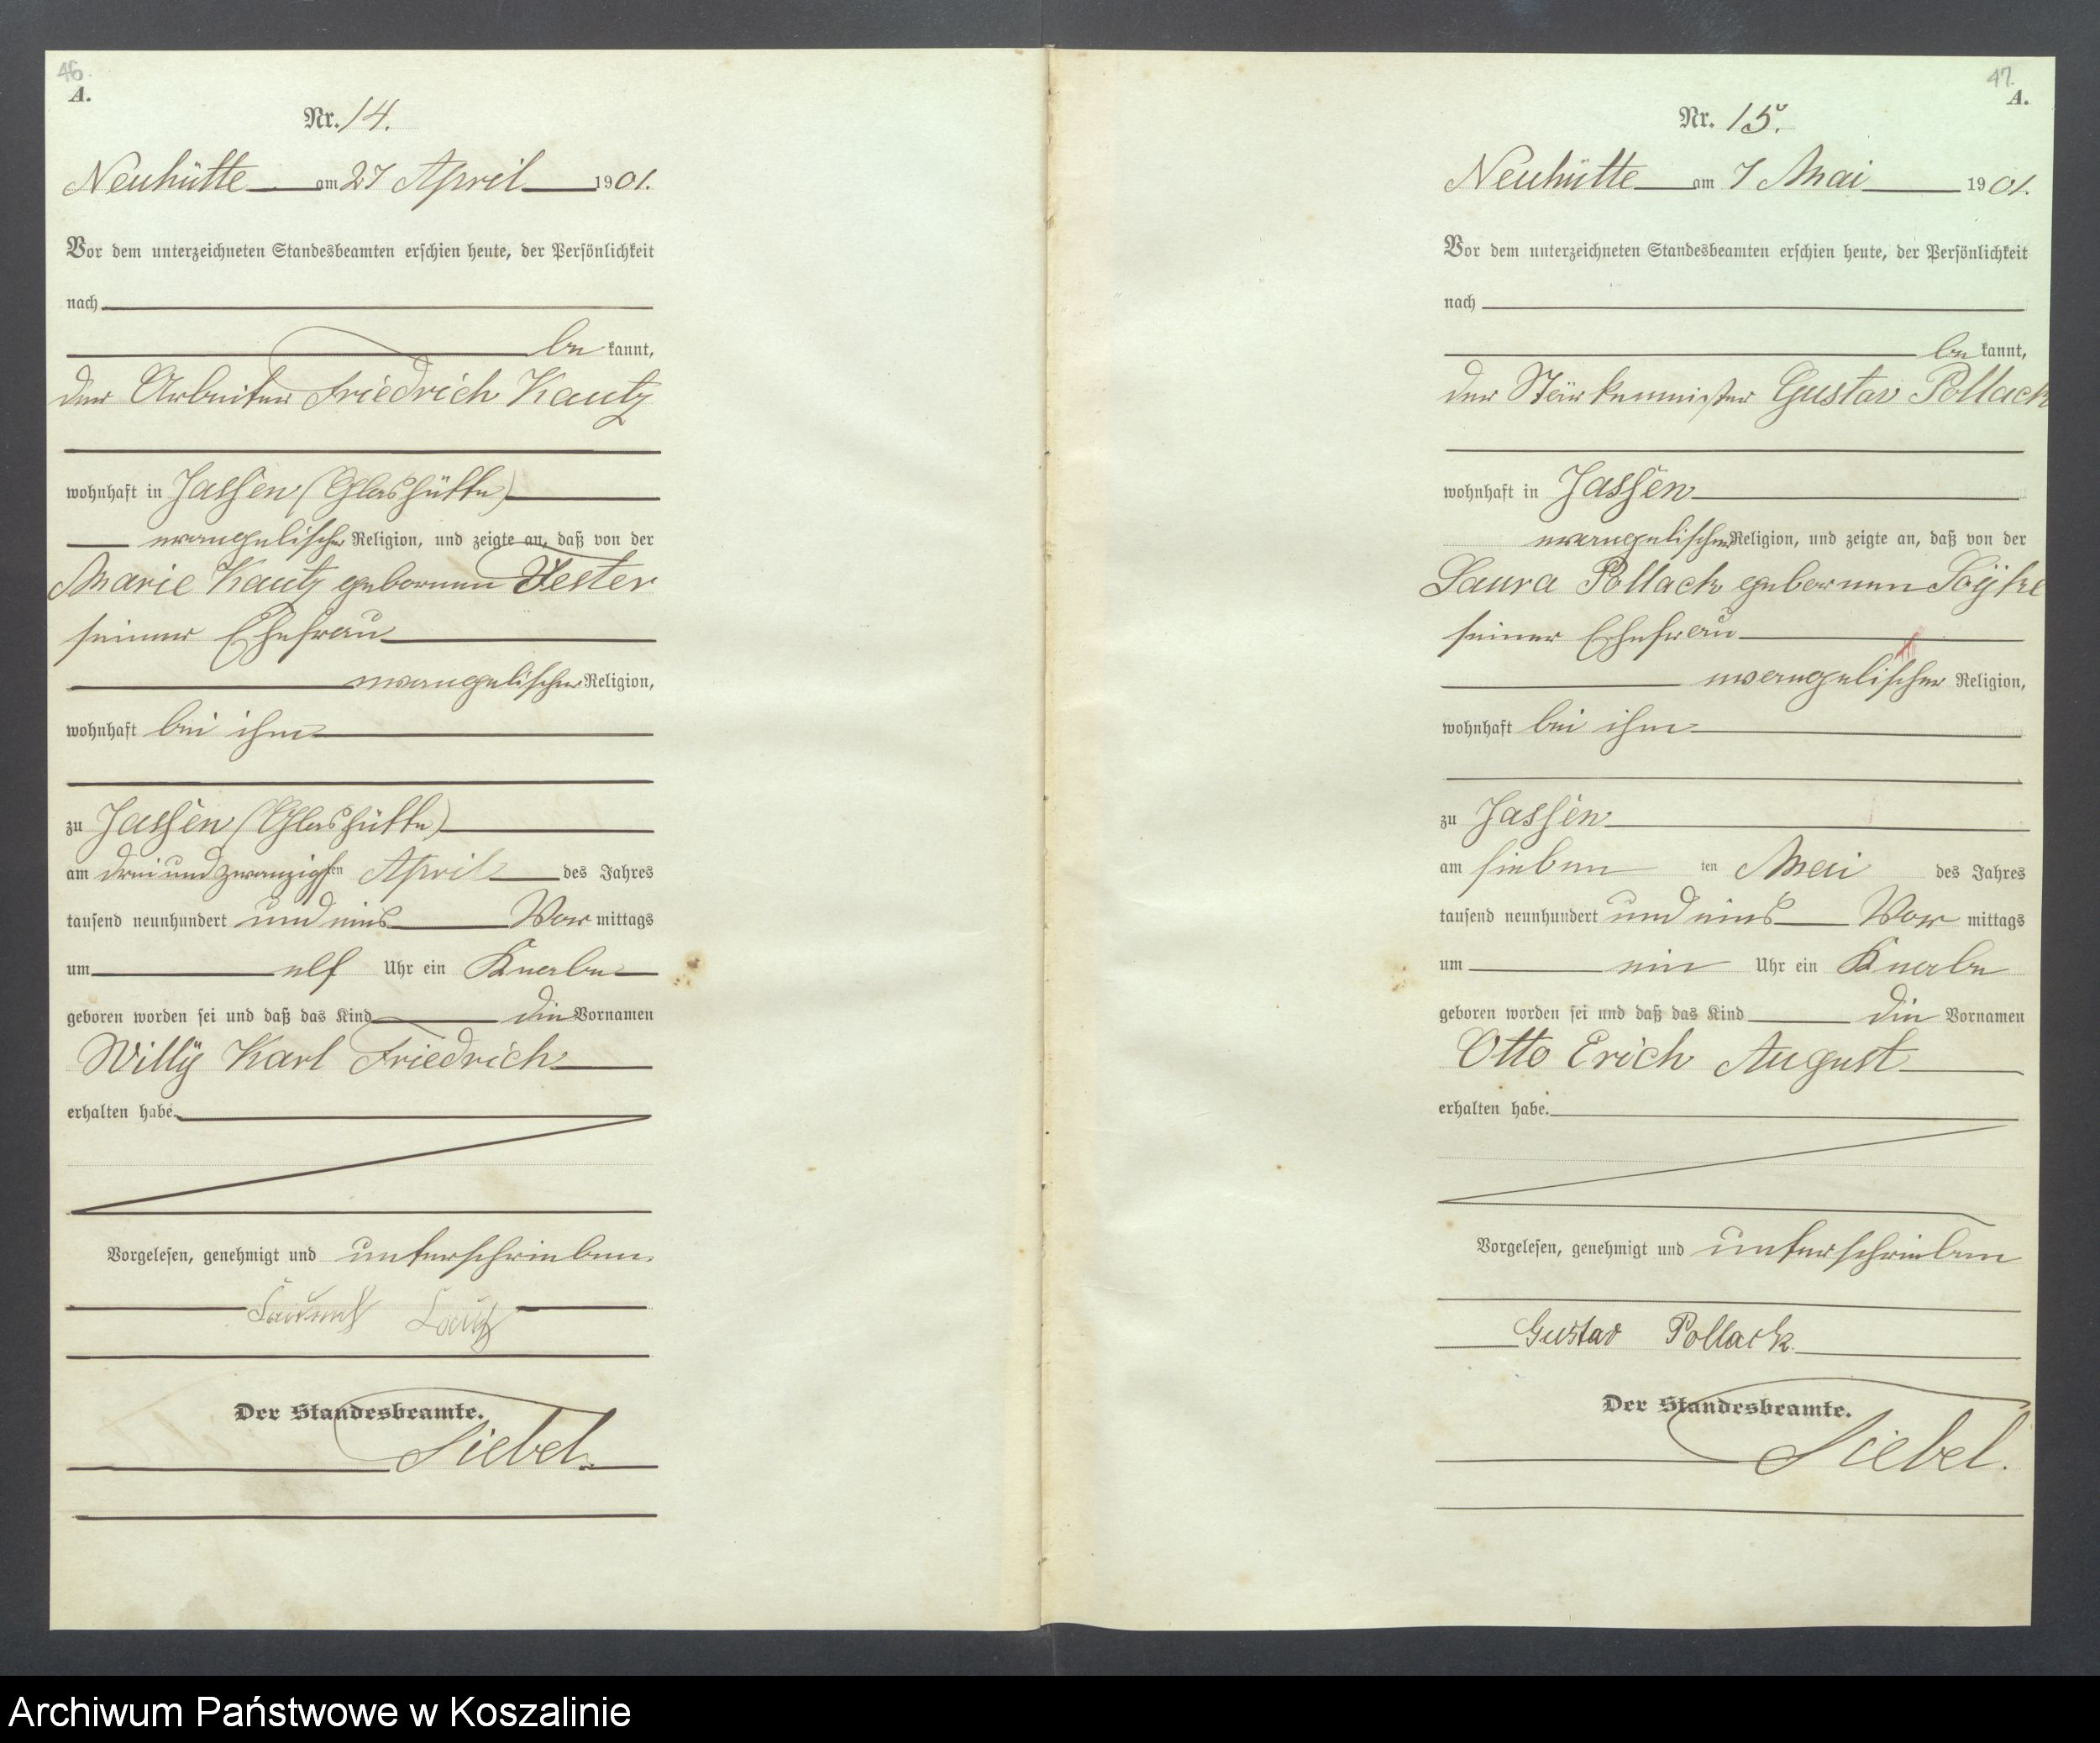 46.
A.
Nr. 14.
Neuhütte am 27 April 1901.
Vor dem unterzeichneten Standesbeamten erschien heute, der Persönlichkeit
nach
be kannt,
der Arbeiter Friedrich Kautz
wohnhaft in Jassen (Glashütte)
evangelischer Religion, und zeigte an, daß von der
Marie Kautz geborenen
seiner Ehefrau
evangelischer Religion,
wohnhaft bei ihm
zu Jassen (Glashütte)
am dreiundzwanzigsten April des Jahres
tausend neunhundert und eins Vor mittags
um elf Uhr ein Knabe
geboren worden sei und daß das Kind die Vornamen
Willÿ Karl Friedrich
erhalten habe.
Vorgelesen, genehmigt und unterschrieben
Der Standesbeamte.
Siebel.
47.
A.
Nr. 15.
Neuhütte am 7 Mai 1901.
Vor dem unterzeichneten Standesbeamten erschien heute, der Persönlichkeit
nach
be kannt,
der Stärkemeister Gustav Pollack
wohnhaft in Jassen
evangelischer Religion, und zeigte an, daß von der
Laura Pollack geborenen
seiner Ehefrau
evangelischer Religion,
wohnhaft bei ihm
zu Jassen
am sieben ten Mai des Jahres
tausend neunhundert und eins Vor mittags
um ein Uhr ein Knabe
geboren worden sei und daß das Kind die Vornamen
Otto Erich August
erhalten habe.
Vorgelesen, genehmigt und unterschrieben
Gustav Pollack.
Der Standesbeamte.
Siebel.
Archiwum Państwowe w Koszalinie